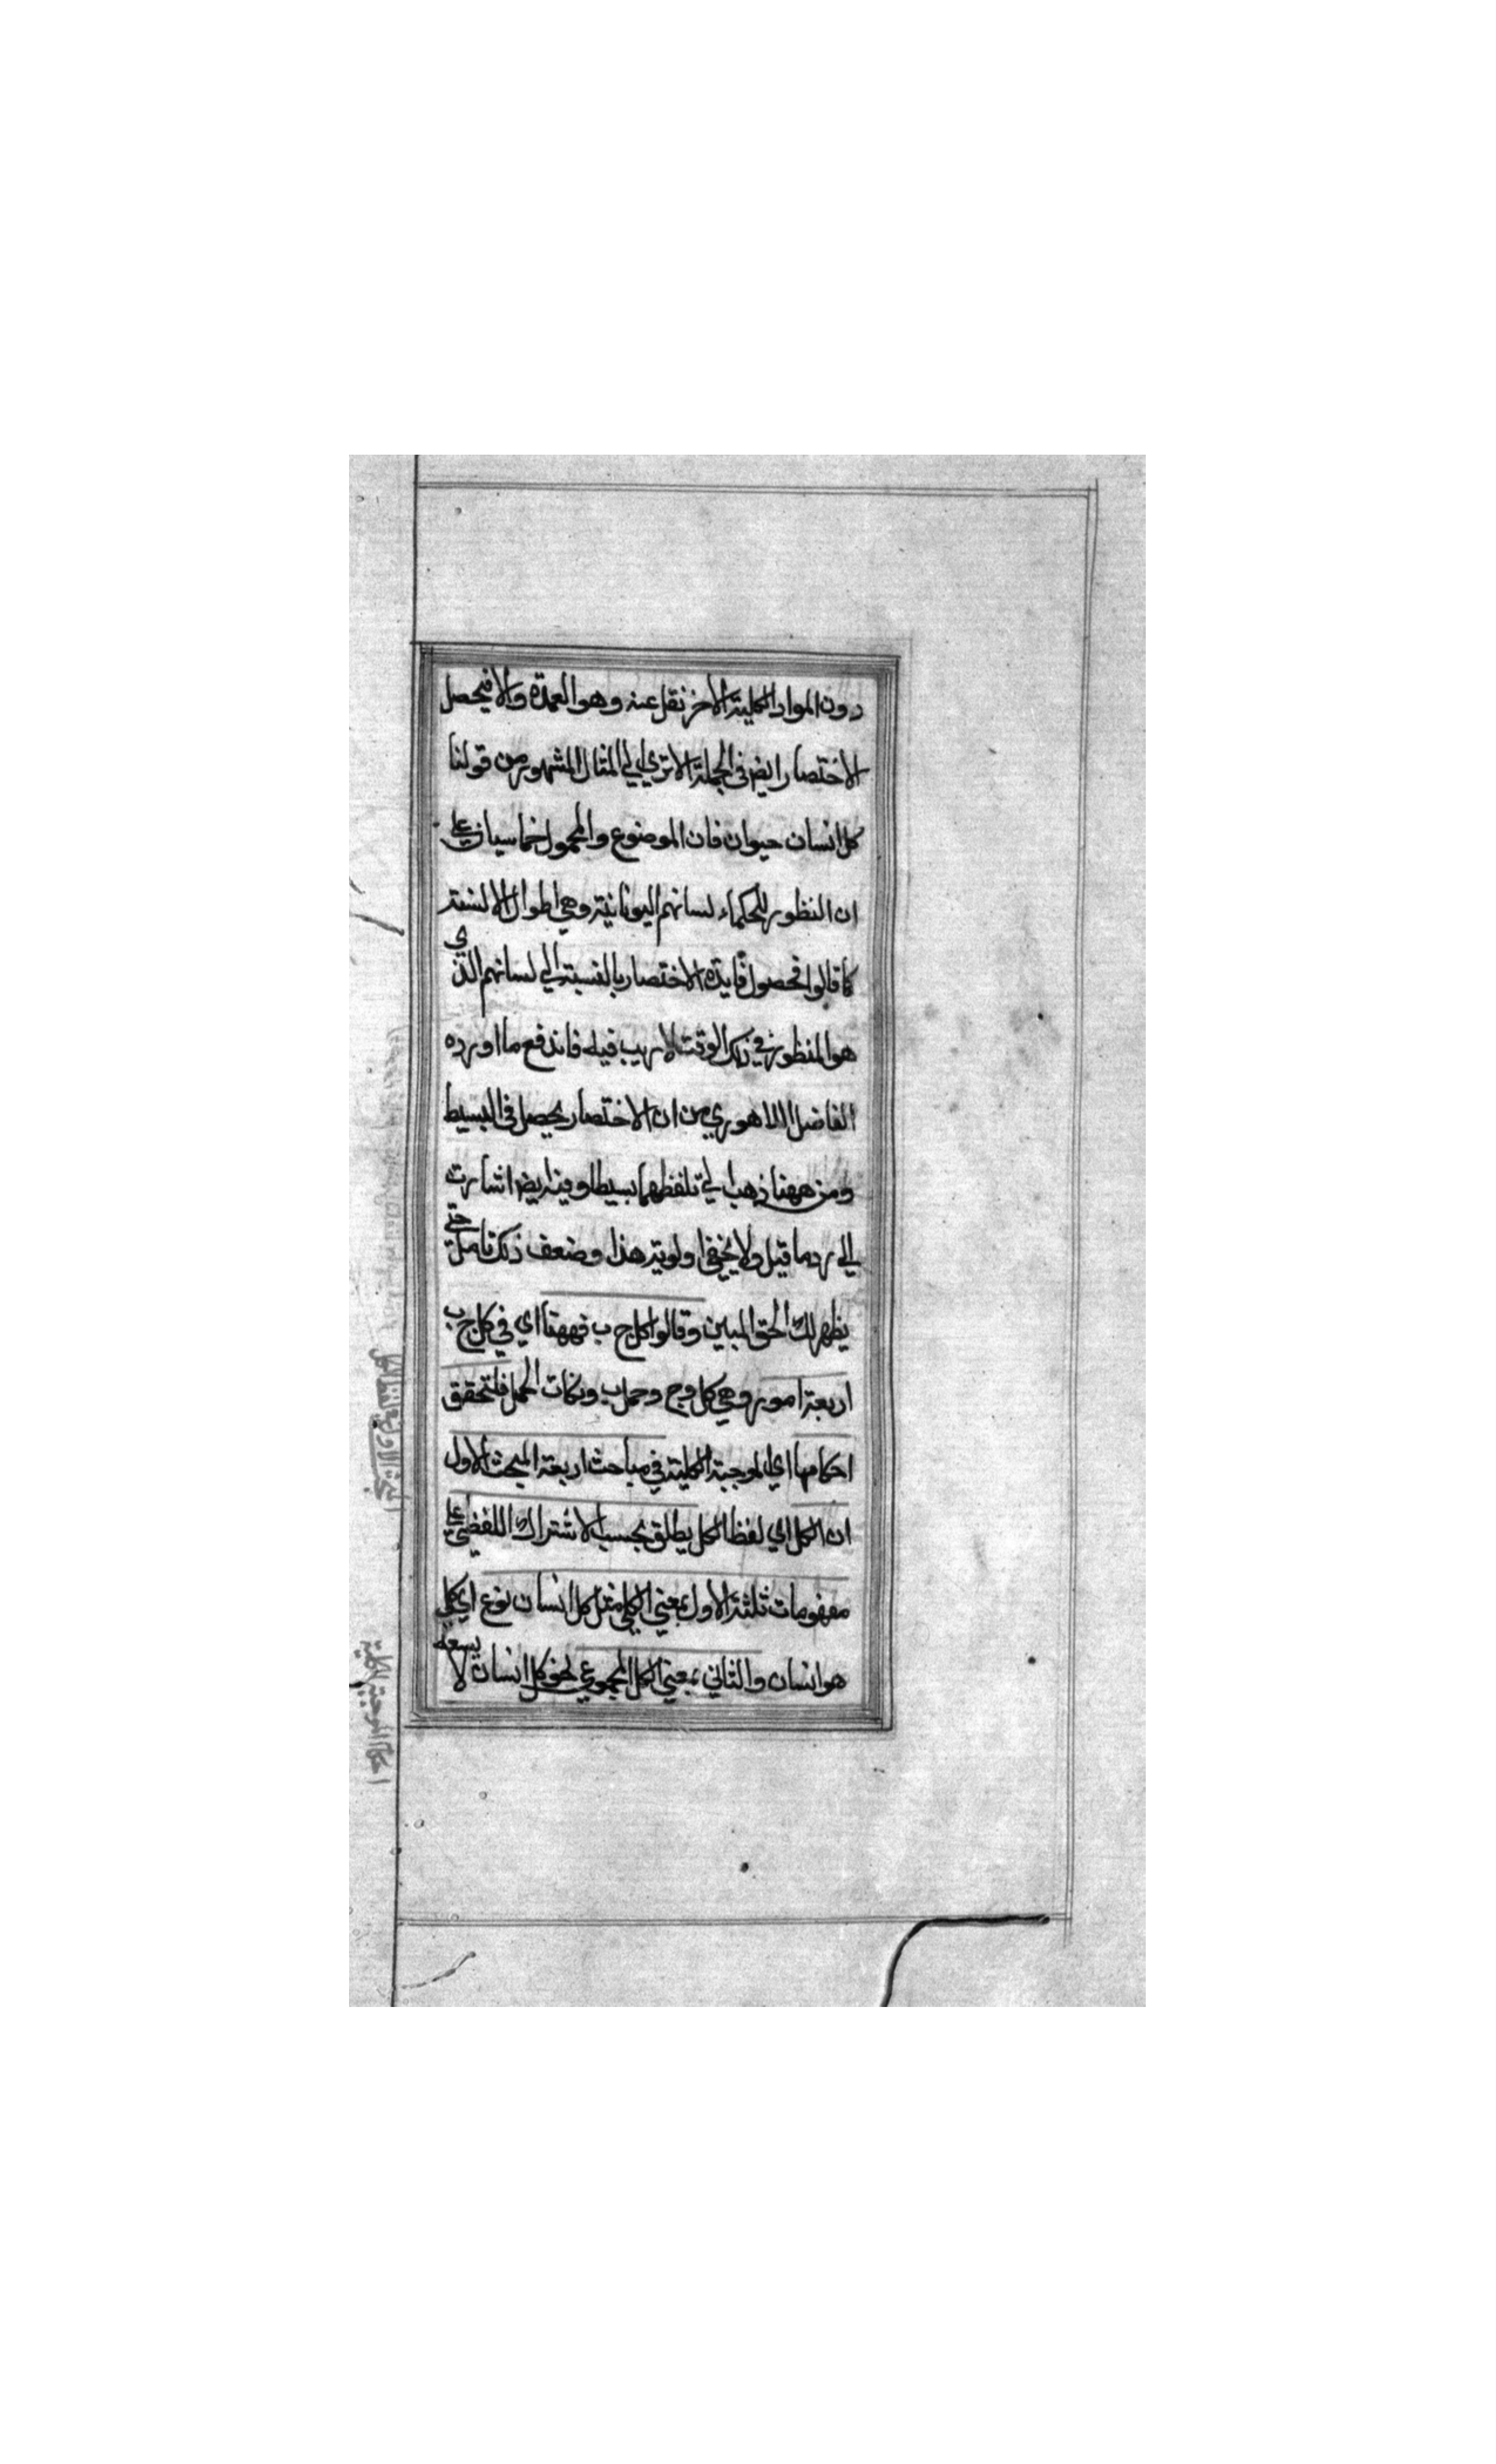 دون المواد الكلية الاخر نقل عنه وهو العمدة والا فيحصل
الاختصار ايض فى الجملة الا ترى الي المثال المشهور من قولنا
كل انسان حيوان فان الموضوع والمحمول خماسيان علي
ان المنظور للحكماء لسانهم اليونانية وهي اطوال الالسنة
كما قالوا فحصول فايدة الاختصار بالنسبة الي لسانهم الذي
هو المنظور في ذلك الوقت لا ريب فيه فاندفع ما اورده
الفاضل اللاهوري من ان الاختصار يحصل فى البسيط
ومن ههنا ذهب الي تلفظهما بسيطا وفيه ايض اشارة
الي رد ما قيل ولا يخفي اولوية هذا وضعف ذلك تامل حتي
يظهر لك الحق المبين وقالوا كل ج ب فههنا اي في كل ج ب
اربعة امور وهي كل وج وحمل ب ونكات الحمل فلتحقق
احكامها اي الموجبة الكلية في مباحث اربعة المبحث الاول
ان الكل اي لفظ الكل يطلق بحسب الاشتراك اللفظي علي
مفهومات ثلثة الاول بمعني الكلي مثل كل انسان نوع اي كلي
هو انسان والثاني بمعني الكل المجموعي نحو كل انسان لا يسعه
المبحث الاول في لفظ الكل
احكام الموجبة الكلية